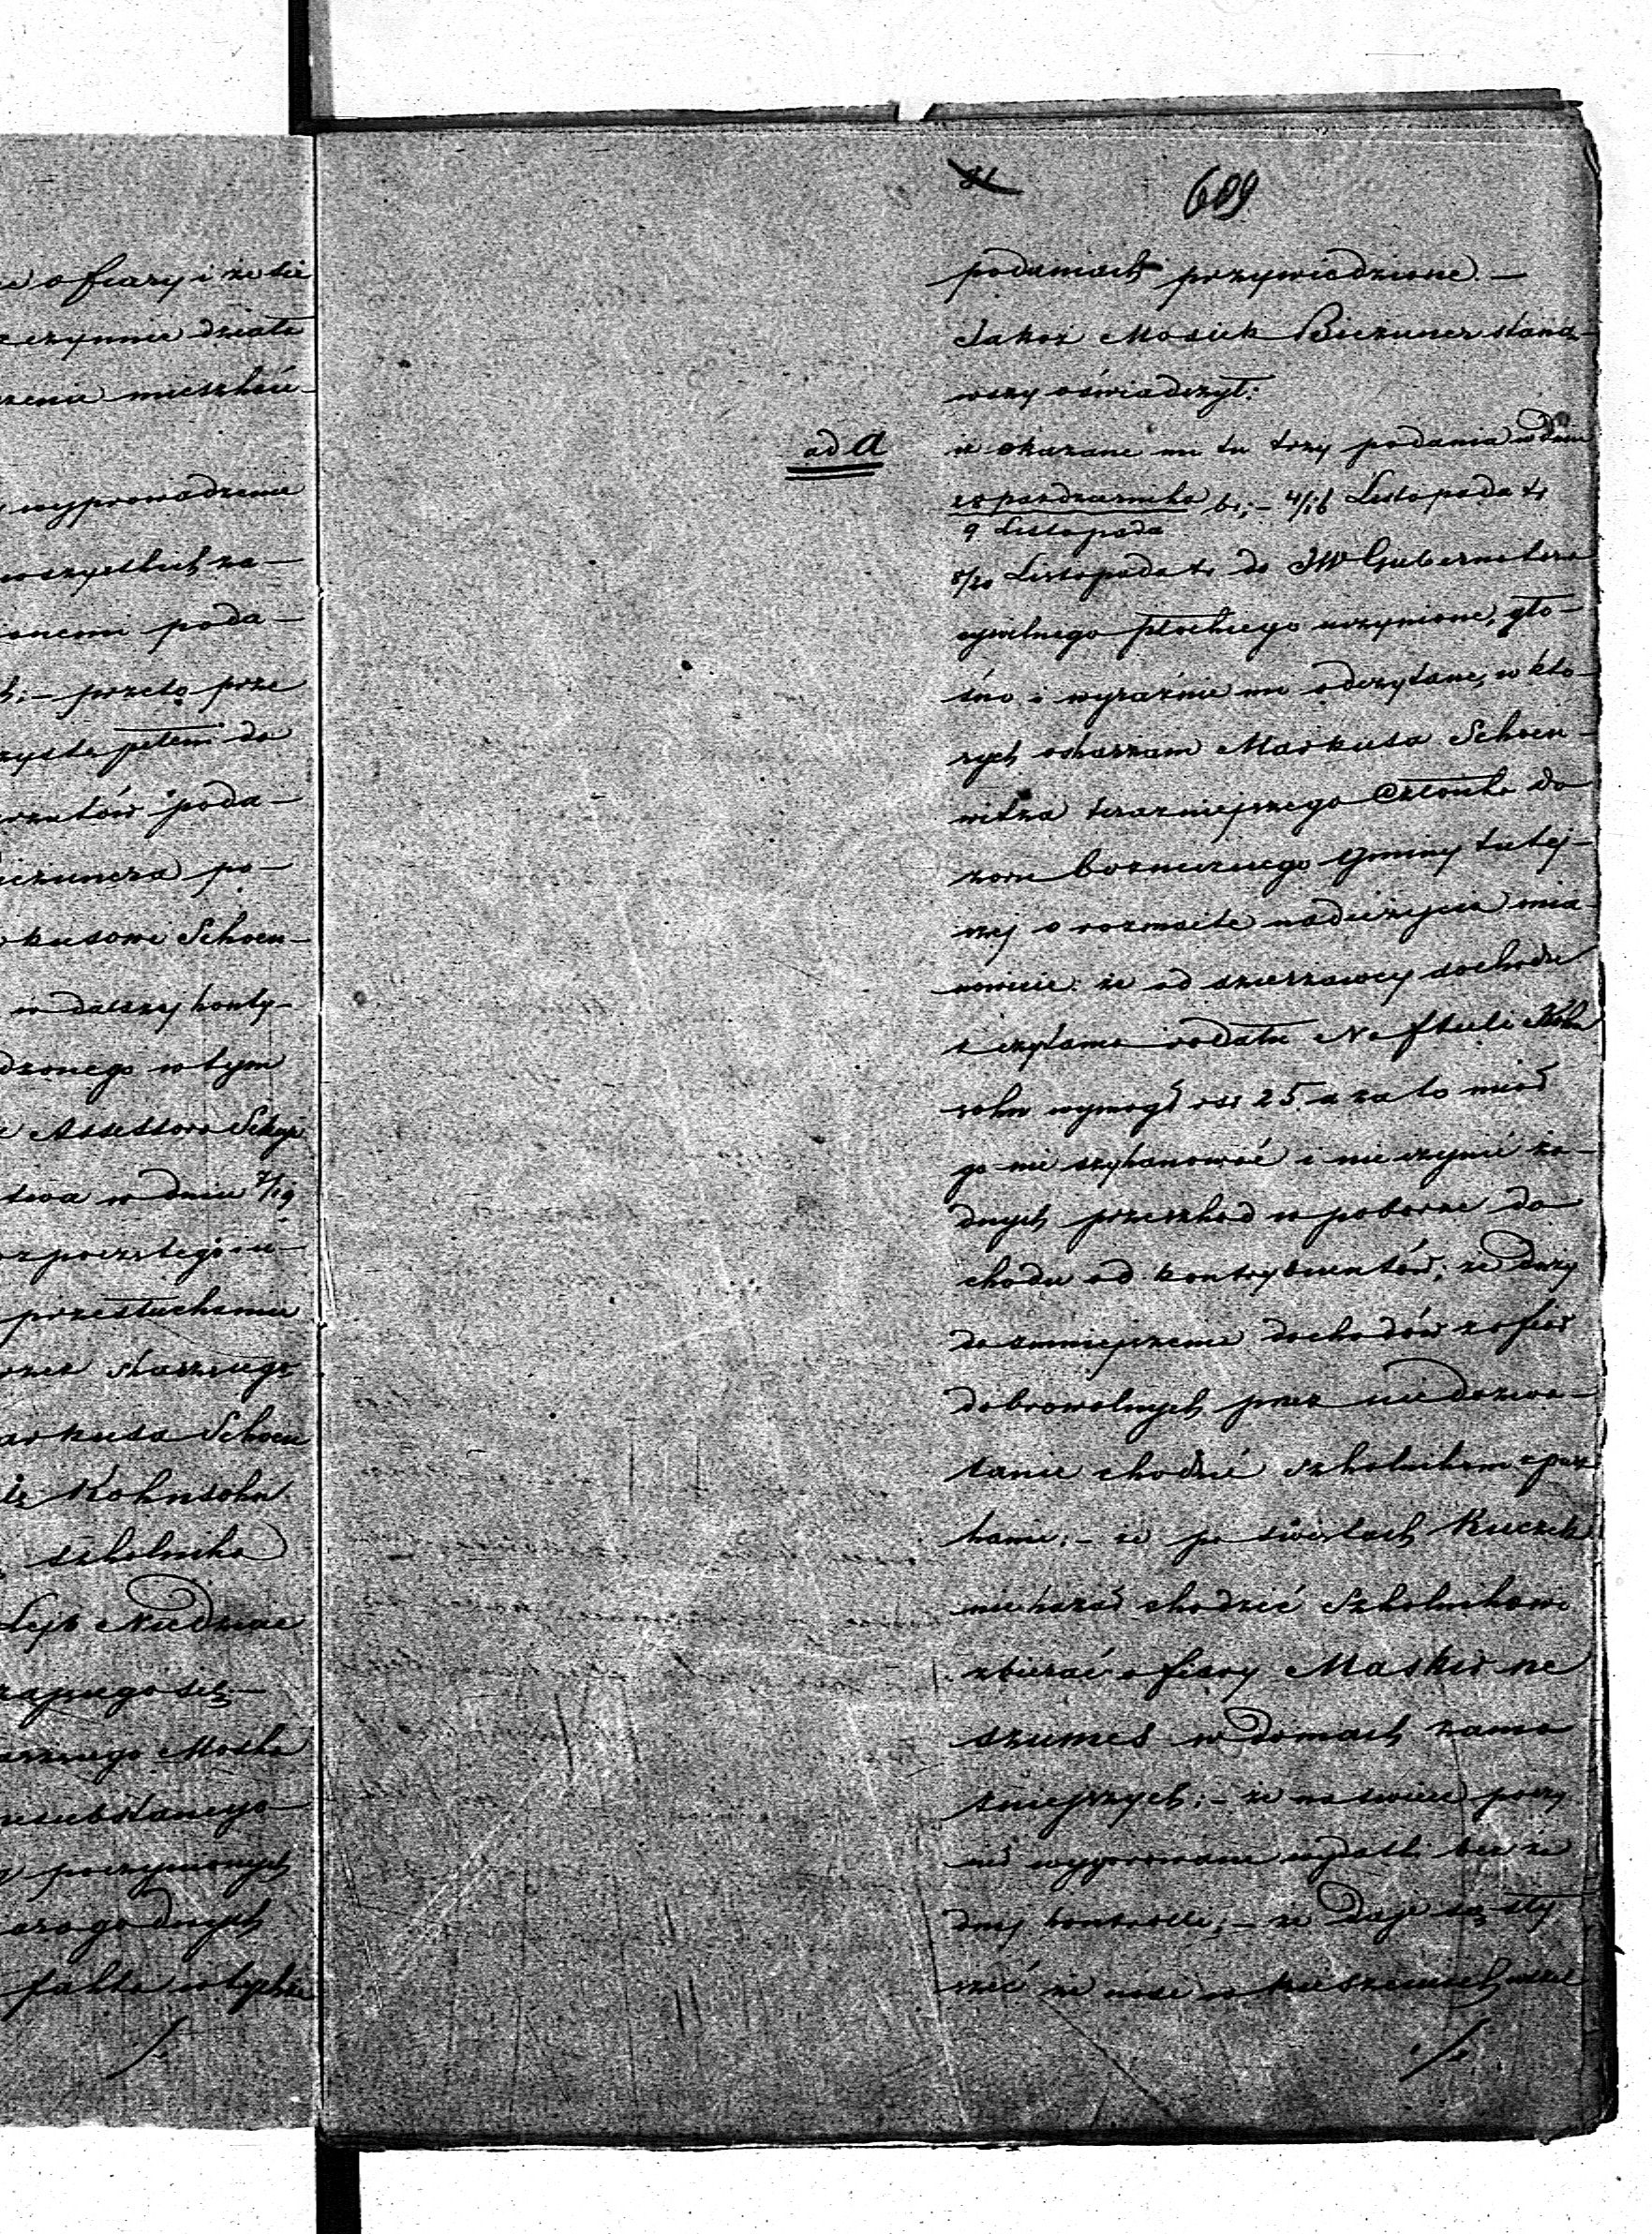 e ofiary i że też
czynnie działa
zenia mieszkań-
wyprowadzenia
wszystkich za-
ionemi poda-
przeto prze
zystąpiłem do
rzutów poda-
iezunera po-
kusowi Schoen-
w dalszej konty-
dzonego w tym
Assessora Sekcyi
twa w dniu 7/19
ozpoczętego
przesłuchania
rzez starszego
arkusa Schoen
Kohnsohn
szkolnika
Lejb Niedzwie
rzającego się
arszego Moska
poczynionych
arogodnych
fakta w tychże
./.
609
podaniach przywiedzione. —
Jakoż Mosiek Bieżuner staną-
wszy oświadczył:
ad A
iż okazane mi tu trzy podania w dniu
28 pazdziernika / 9 Listopada br; – 4/16 Listopada br
8/20 Listopada br do JW Gubernatora
cywilnego płockiego uczynione, gło-
śno i wyraźnie mi odczytane, w któ-
rych oskarżam Markusa Schoen-
witza teraźniejszego Członka do-
zoru bożniczego Gminy tutej-
szej o rozmaite nadużycia mia-
nowicie: że od dzierżawcy dochodu
z czytania rodału Naftuli Kohn
sohn wymógł rsr 25. a za to miał
go nie szykanować i nie czynić ża-
dnych przeszkód w poborze do
chodu od kontrybuentów; że dąży
do zmniejszenia dochodów z ofiar
dobrowolnych przez niedozwa-
lanie chodzić szkolnikom z pusz-
kami; – że po świętach Kuczek
nie kazał chodzić Szkolnikowi
zbierać ofiary Maskir ne
szumes w domach zamo
żniejszych; – że na świece poczy
nił wygórowane wydatki bez ża
dnej kontrolli; – że daje się sły
szeć że nosi w kieszeniach
./.